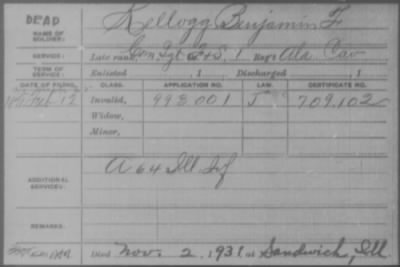 DEAD
NAME OF SOLDIER: Kellogg Benjamin F
SERVICE: Late rank, Com Sgt F+S, 1 Reg't Ala Cav
TERM OF SERVICE: Enlisted , 1 Discharged , 1
DATE OF FILING. CLASS. APPLICATION NO. LAW. CERTIFICATE NO.
Invalid, 998.001 J 709.102
Widow,
Minor,
A 64 Ill. Inf
ADDITIONAL SERVICES:
REMARKS:
Died Nov. 2, 1931, at Sandwich, Ill